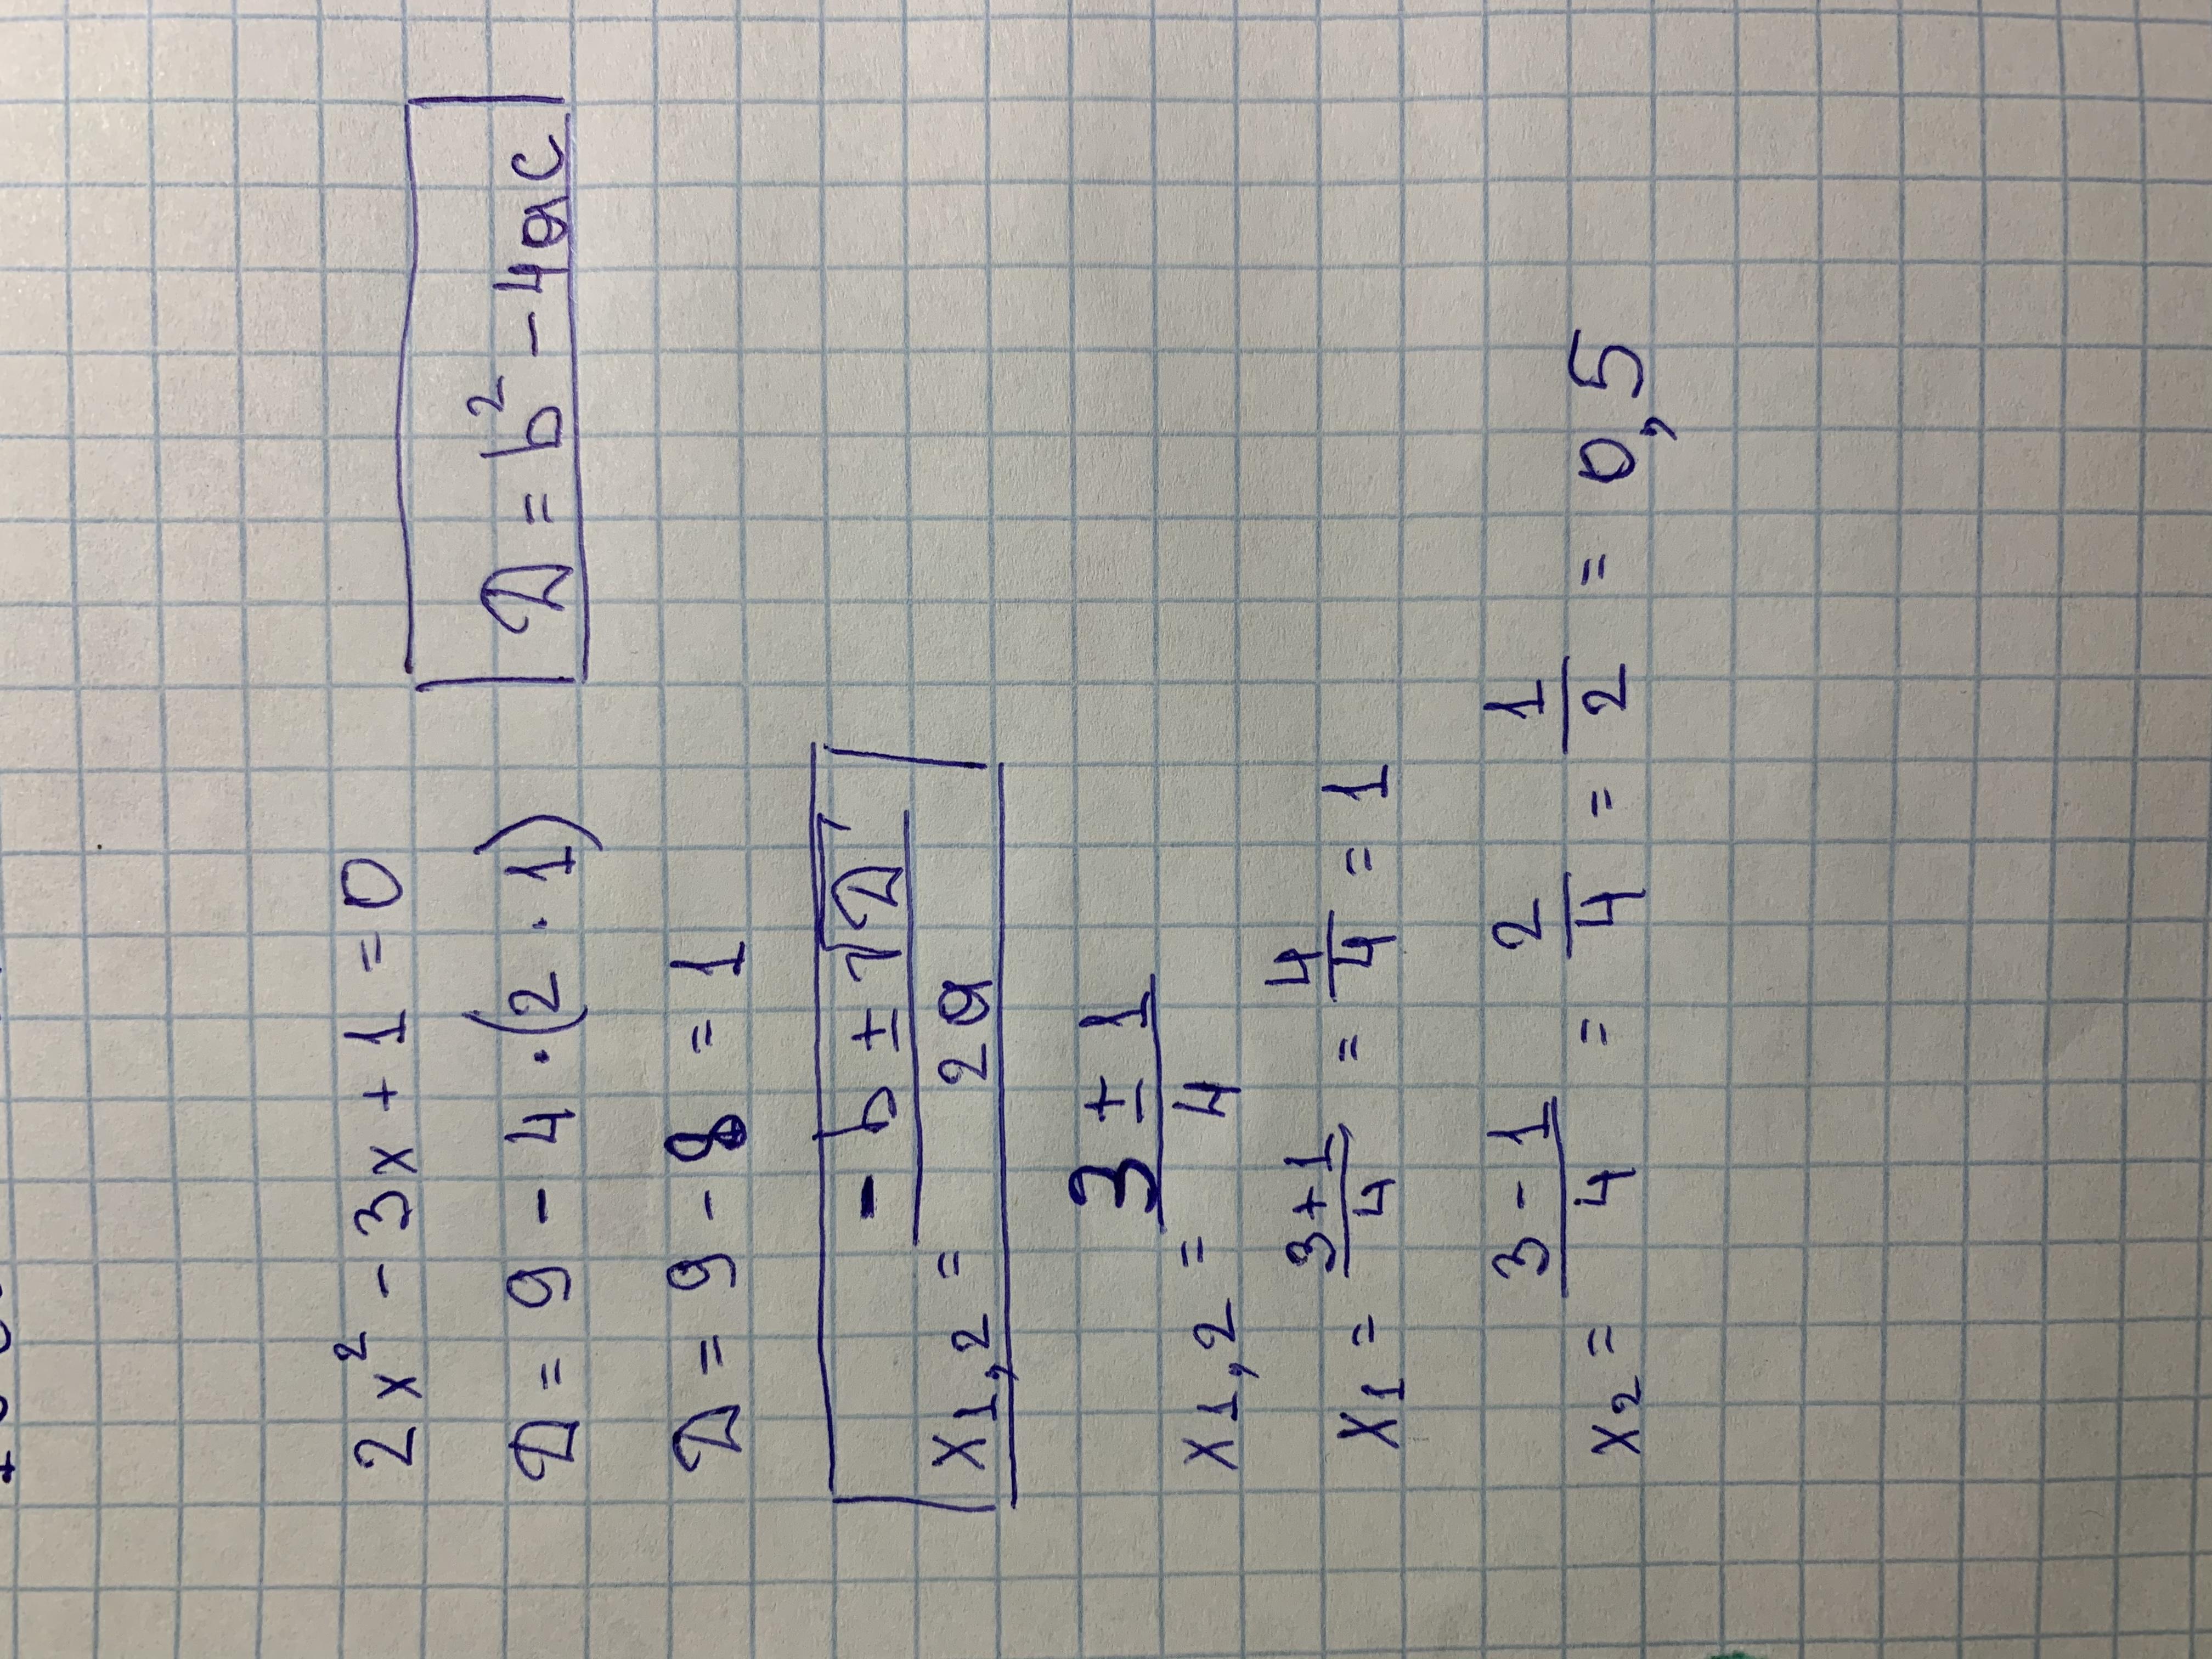 2x² - 3x + 1 = 0
D = b² - 4ac
D = 9 - 4 · (2 · 1)
D = 9 - 8 = 1
x₁,₂ = (-b ± √D) / 2a
x₁,₂ = (3 ± 1) / 4
x₁ = (3+1)/4 = 4/4 = 1
x₂ = (3 - 1)/4 = 2/4 = 1/2 = 0,5